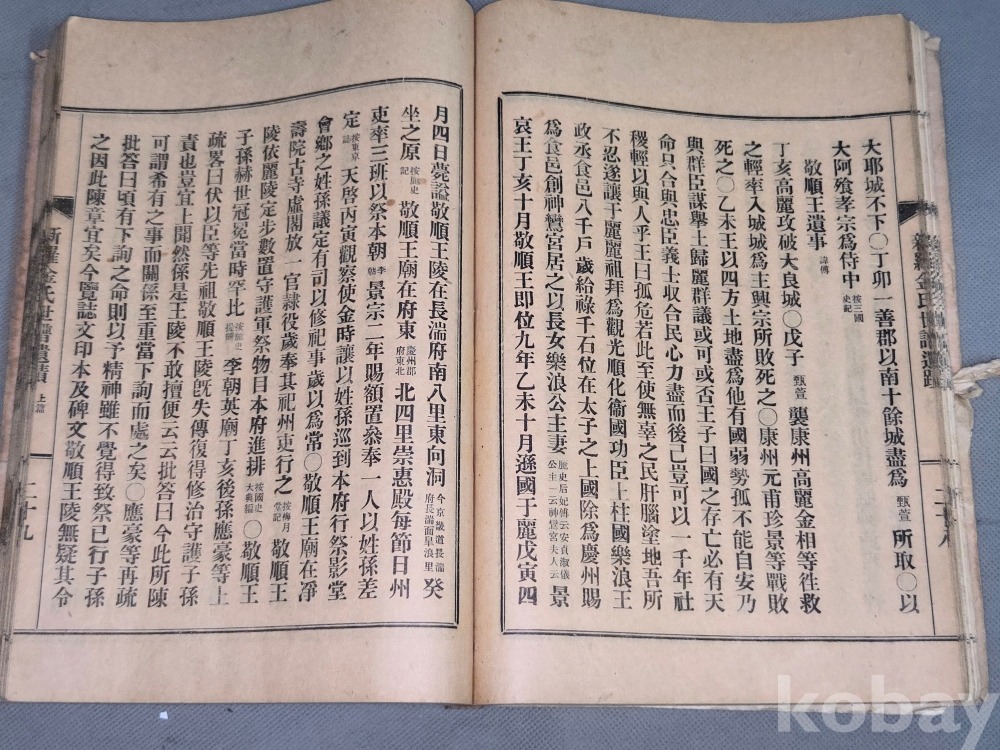 大耶城不下〇丁卯一善郡以南十餘城盡爲甄萱所取〇以
大阿飡孝宗爲侍中按三國史記
敬順王遺事諱傅
丁亥高麗攻破大良城〇戊子甄萱襲康州高麗金相等徃救
之輕率入城城爲主興宗所敗死之〇康州元甫珍景等戰敗
死之〇乙未王以四方土地盡爲他有國弱勢孤不能自安乃
與群臣謀擧土歸麗群議或可或否王子曰國之存亡必有天
命只合與忠臣義士収合民心力盡而後已豈可以一千年社
稷輕以與人乎王曰孤危若此至使無辜之民肝腦塗地吾所
不忍遂讓于麗麗祖拜爲觀光順化衞國功臣上柱國樂浪王
政丞食邑八千戶歲給祿千石位在太子之上國除爲慶州賜
爲食邑創神鸞宮居之以長女樂浪公主妻麗史后妃傳云安貞淑儀公主一云神鸞宮夫人云景
哀王丁亥十月敬順王卽位九年乙未十月遜國于麗戊寅四
月四日薨謚敬順王陵在長湍府南八里東向洞今京畿道長湍府長湍面皐浪里癸
坐之原按麗史記敬順王廟在府東慶州郡府東北北四里崇惠殿每節日州
吏率三班以祭本朝李朝景宗二年賜額置叅奉一人以姓孫差
定按東京誌天啓丙寅觀察使金時讓以姓孫巡到本府行祭影堂
會鄉之姓孫議定有司以修祀事歲以爲常〇敬順王廟在凈
壽院古寺虛閣放一官隷役歲奉其祀州吏行之按梅月堂記敬順王
陵依麗陵定步數置守護軍祭物目本府進排按國史大典編〇敬順王
子孫赫世冠冕當時罕比按麗史提綱李朝英廟丁亥後孫應豪等上
疏畧曰伏以臣等先祖敬順王陵旣失傳復得修治守護子孫
責也豈宜上聞然係是王陵不敢擅便云云批答曰今此所陳
可謂希有之事而關係至重當下詢而處之矣〇應豪等再疏
批答曰頃有下詢之命則以予精神雖不覺得致祭已行子孫
之因此陳章宜矣今覽誌文印本及碑文敬順王陵無疑其令
新羅金氏世譜遺蹟 上篇 二十九